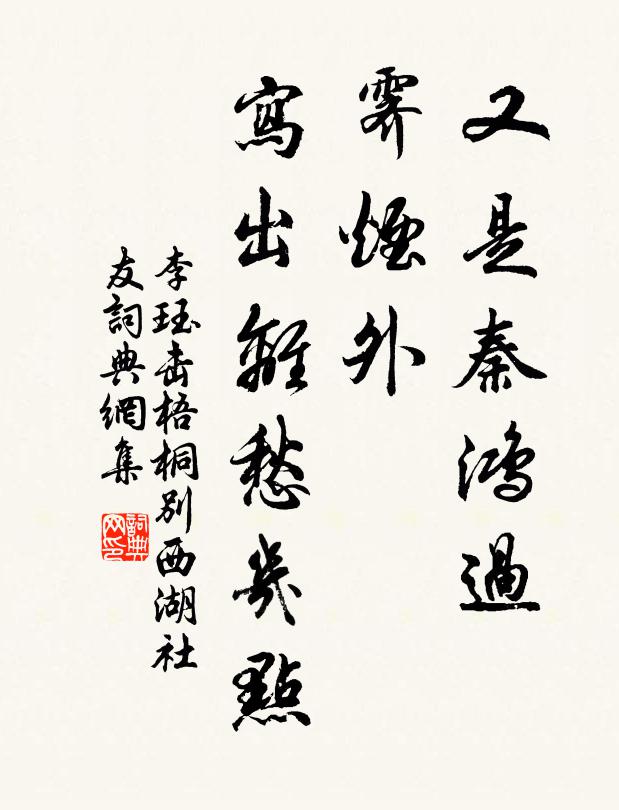 又是秦鴻過
霽煙外
寫出離愁幾點
李珏击梧桐別西湖社
友詞典網集
詞典
网印